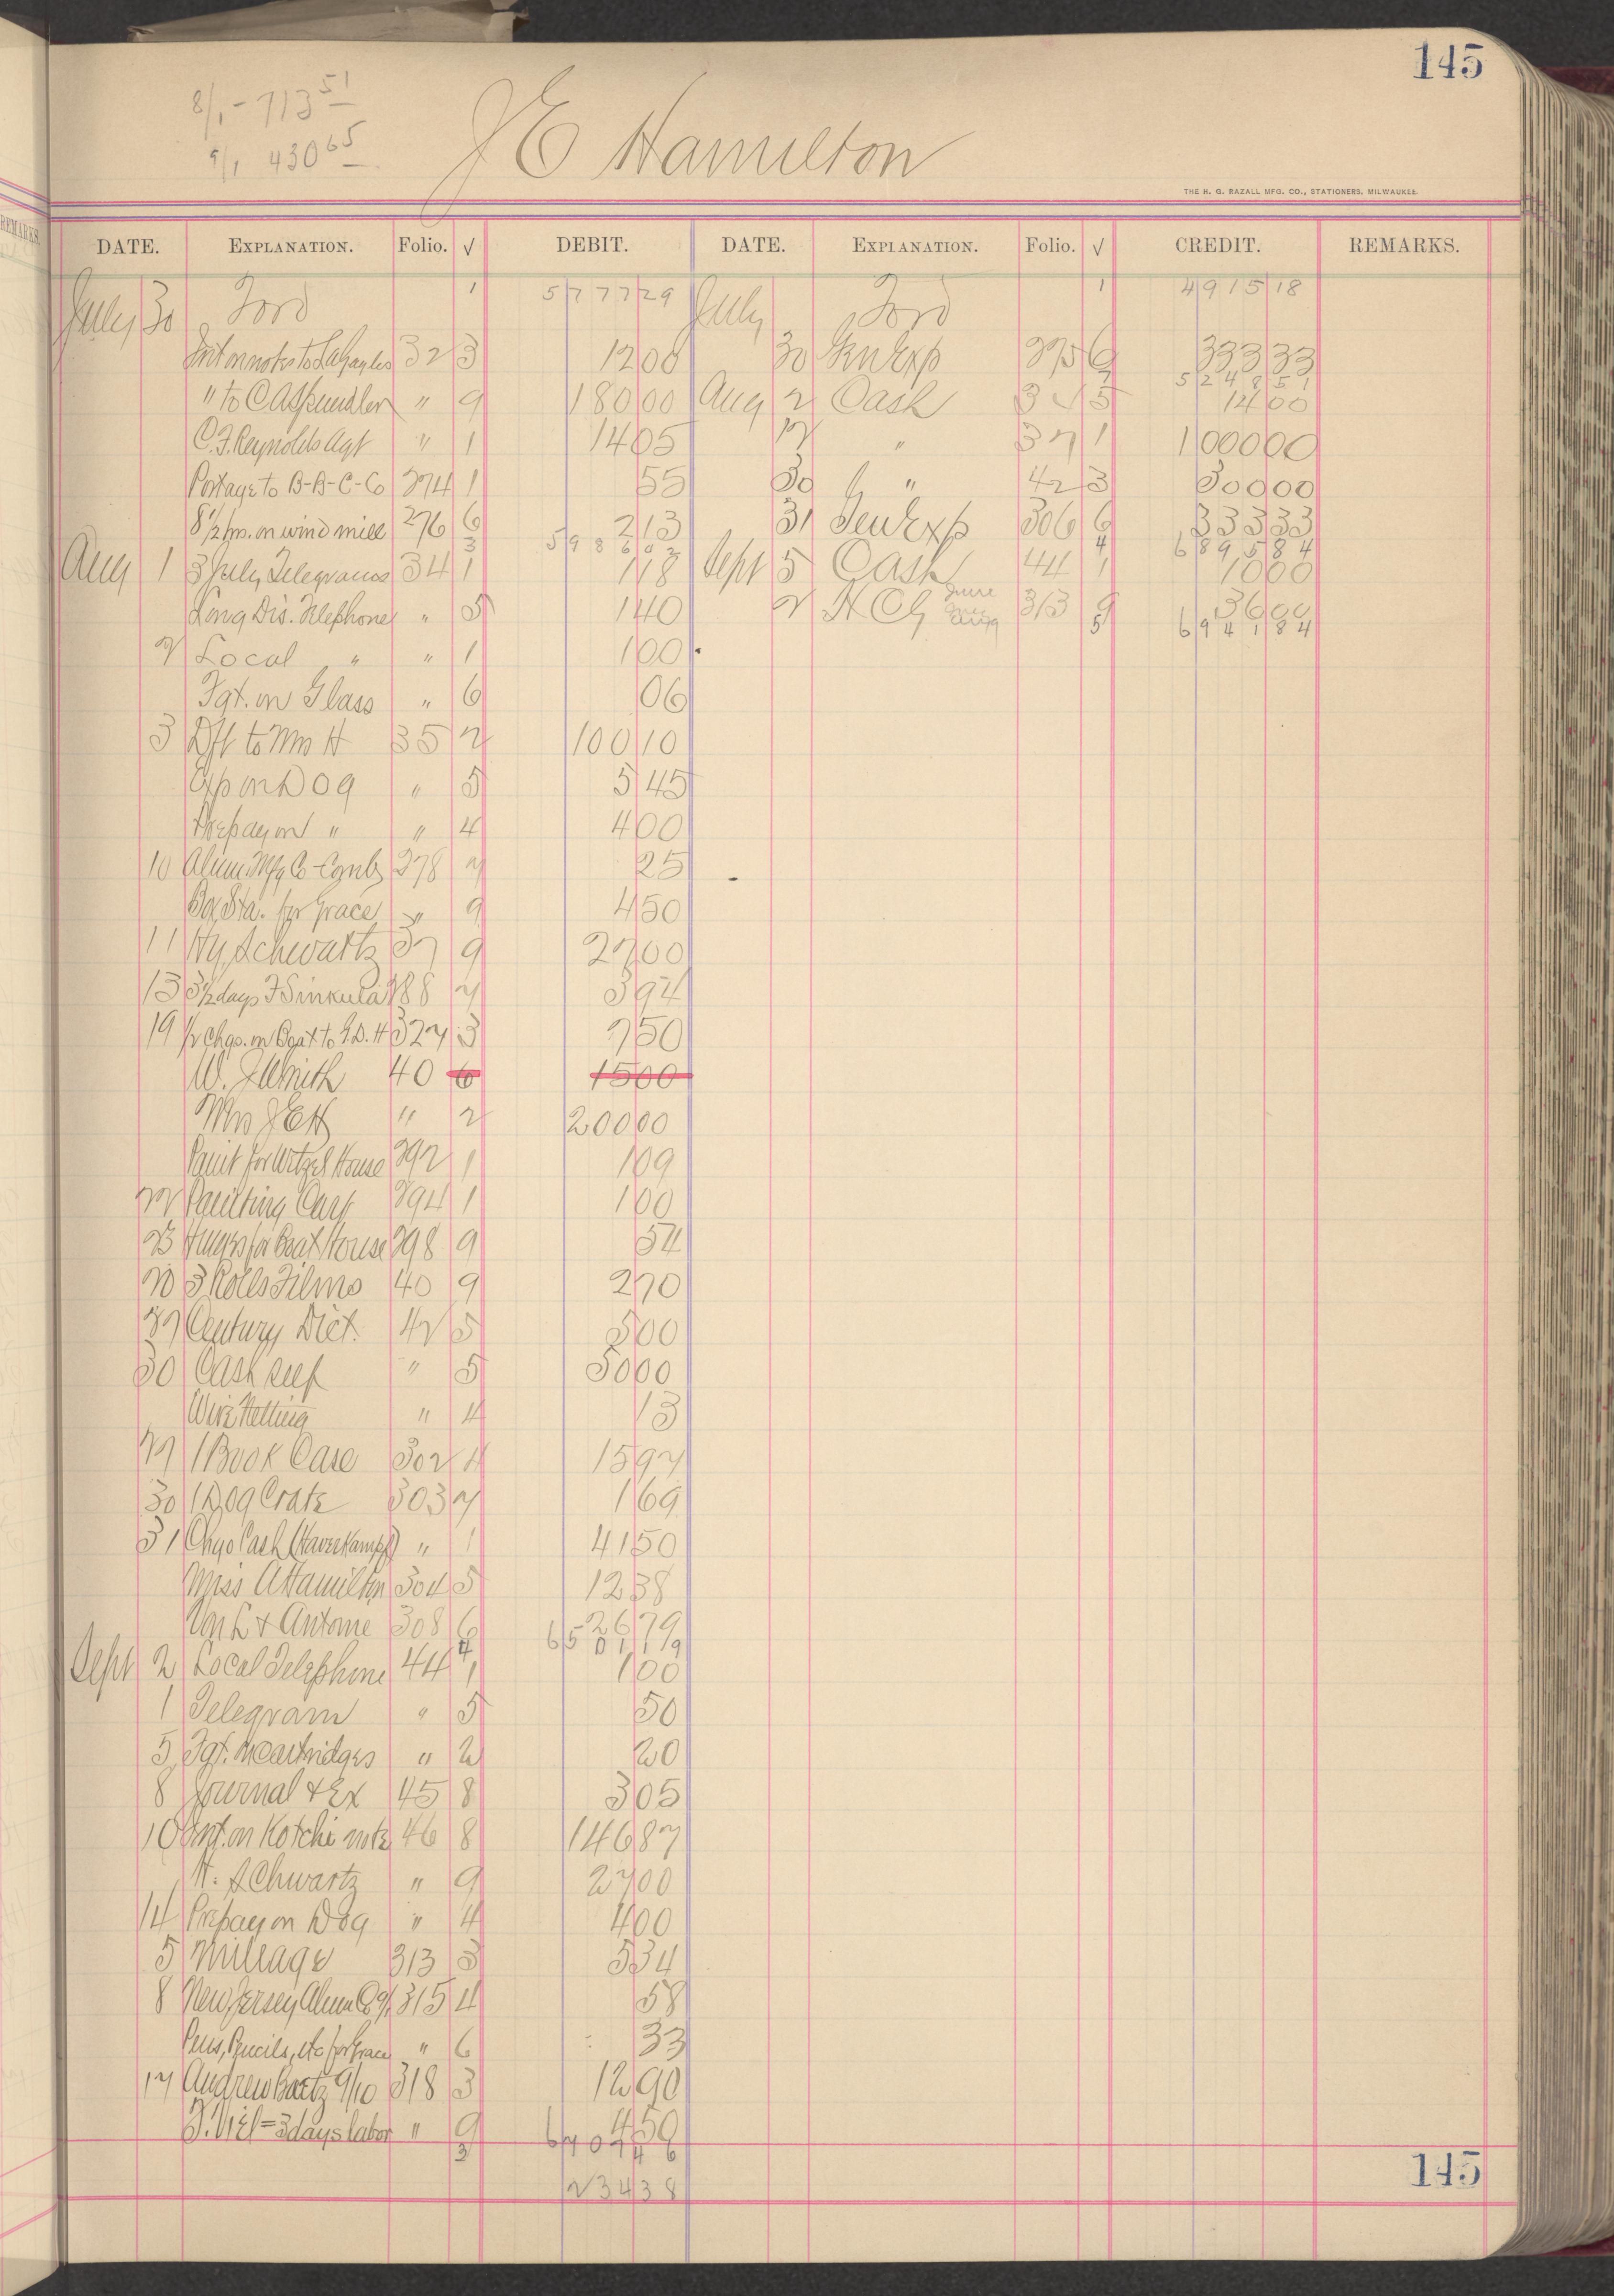 145
8/1 - 713 51
9/1 430 65
J E Hamilton
THE H. G. RAZALL MFG. CO., STATIONERS, MILWAUKEE.
DATE. EXPLANATION. Folio. √ DEBIT. DATE. EXPLANATION. Folio. √ CREDIT. REMARKS.
July 30 Ford 1 5777 29 July Ford 1 4915 18
Int on notes to 32 3 12 00 30 Gen Exp 275 6 333 33
5248 51
" to C A Spindler " 9 180 00 Aug 2 Cash 34 5 14 00
C. F. Reynolds Agt " 1 14 05 12 " 37 1 1000 00
Postage to B-B-C-Co 274 1 55 30 " 42 3 300 00
8 1/2 hrs. on wind mill 276 6 2 13 31 Gen Exp 306 6 333 33
3 5986 02 4 6895 84
Aug 1 3 July Telegrams 34 1 1 18 Sept 5 Cash 44 1 10 00
Long Dis. Telephone " 5 1 40 2 H C G June Aug 313 9 36 00
5 6941 84
2 Local " " 1 1 00
Fgt. on Glass " 6 06
3 Dft to Mrs H 35 2 100 10
Exp on Dog " 5 5 45
Prepay on " " 4 4 00
10 Alum. Mfg Co - Combs 278 2 25
Box Sta. for Grace " 9 4 50
11 Hy Schwartz 37 9 27 00
13 3 1/2 days F Sinkula 288 2 3 94
19 1/2 Chgs. on Boat to J.D. H 327 3 7 50
W. J Wrieth 40 6 15 00
Mrs J E H " 2 200 00
Paint for Witzel House 292 1 1 09
22 Painting Cart 294 1 1 00
23 Hinges for Boat House 298 9 54
20 3 Rolls Films 40 9 2 70
27 Century Dict. 42 5 5 00
30 Cash self " 5 50 00
Wire Netting " 4 13
27 1 Book Case 302 4 15 92
30 1 Dog Crate 303 2 1 69
31 Chgo Cash (Haverkampf) " 1 41 50
Miss A Hamilton 304 5 12 38
Von L & Antone 308 6 26 79
4 6501 19
Sept 2 Local Telephone 44 1 1 00
1 Telegram " 5 50
5 Fgt. on Cartridges " 2 20
8 Journal & Ex 45 8 3 05
10 Int. on Kotche note 46 8 146 87
H. Schwartz " 9 27 00
14 Prepay on Dog " 4 4 00
5 Mileage 313 3 5 34
8 New Jersey Alum Co 9/1 315 4 58
Pens, Pencils, etc for Grace " 6 33
17 Andrew Baetz 9/10 318 3 12 90
F. Viel = 3 days labor " 9 4 50
3 6707 46
234 38
145